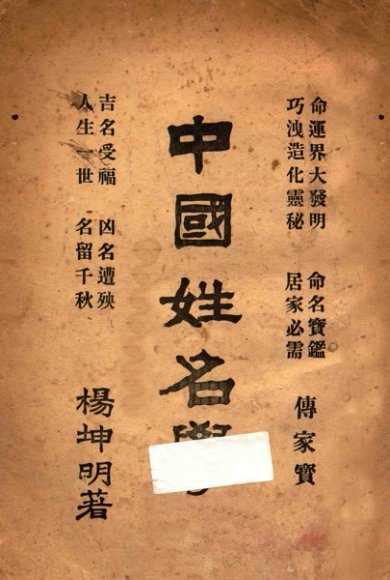 命運界大發明 命名寶鑑
巧洩造化靈秘 居家必需
傳家寶
中國姓名學
吉名受福 凶名遭殃
人生一世 名留千秋
楊坤明著